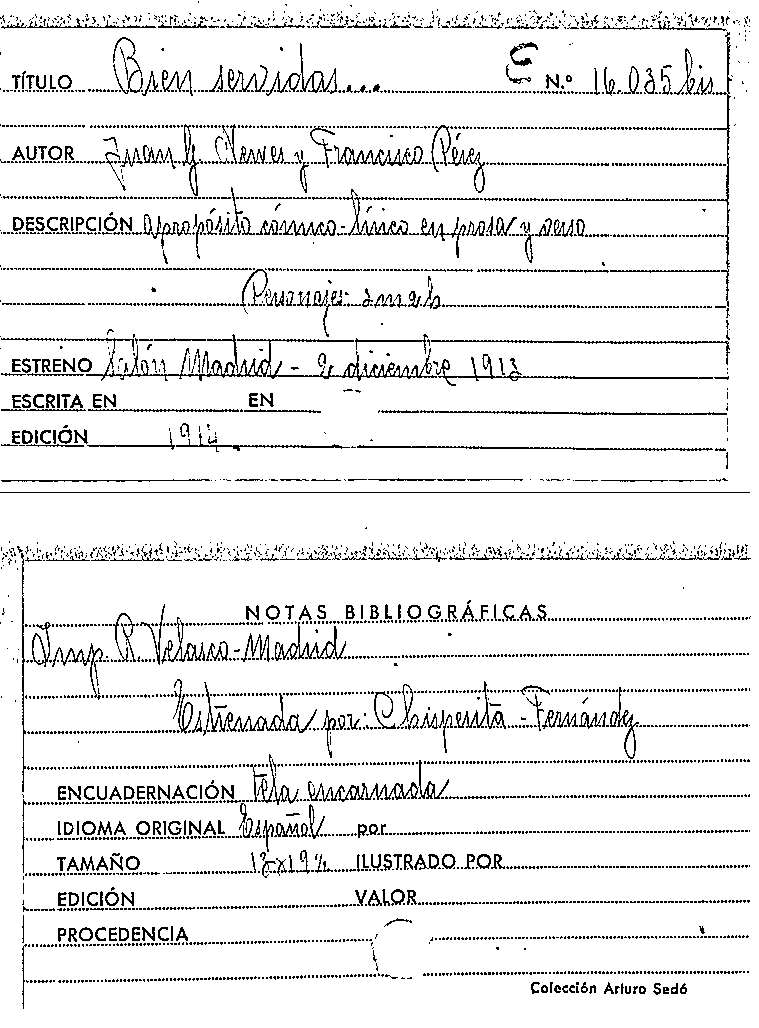 TÍTULO Bien servidas... N.º 16.035 bis
AUTOR Juan G. Renves y Francisco Pérez
DESCRIPCIÓN apropósito cómico-lírico en prosa y verso
Personajes:
ESTRENO Salón Madrid - 2 diciembre 1913
ESCRITA EN EN
EDICIÓN 1914
NOTAS BIBLIOGRÁFICAS
Imp. R. Velasco-Madrid
Estrenada por: Chispenita - Fernández
ENCUADERNACIÓN Tela encarnada
IDIOMA ORIGINAL Español por
TAMAÑO 13x19½ ILUSTRADO POR
EDICIÓN VALOR
PROCEDENCIA
Colección Arturo Sedó